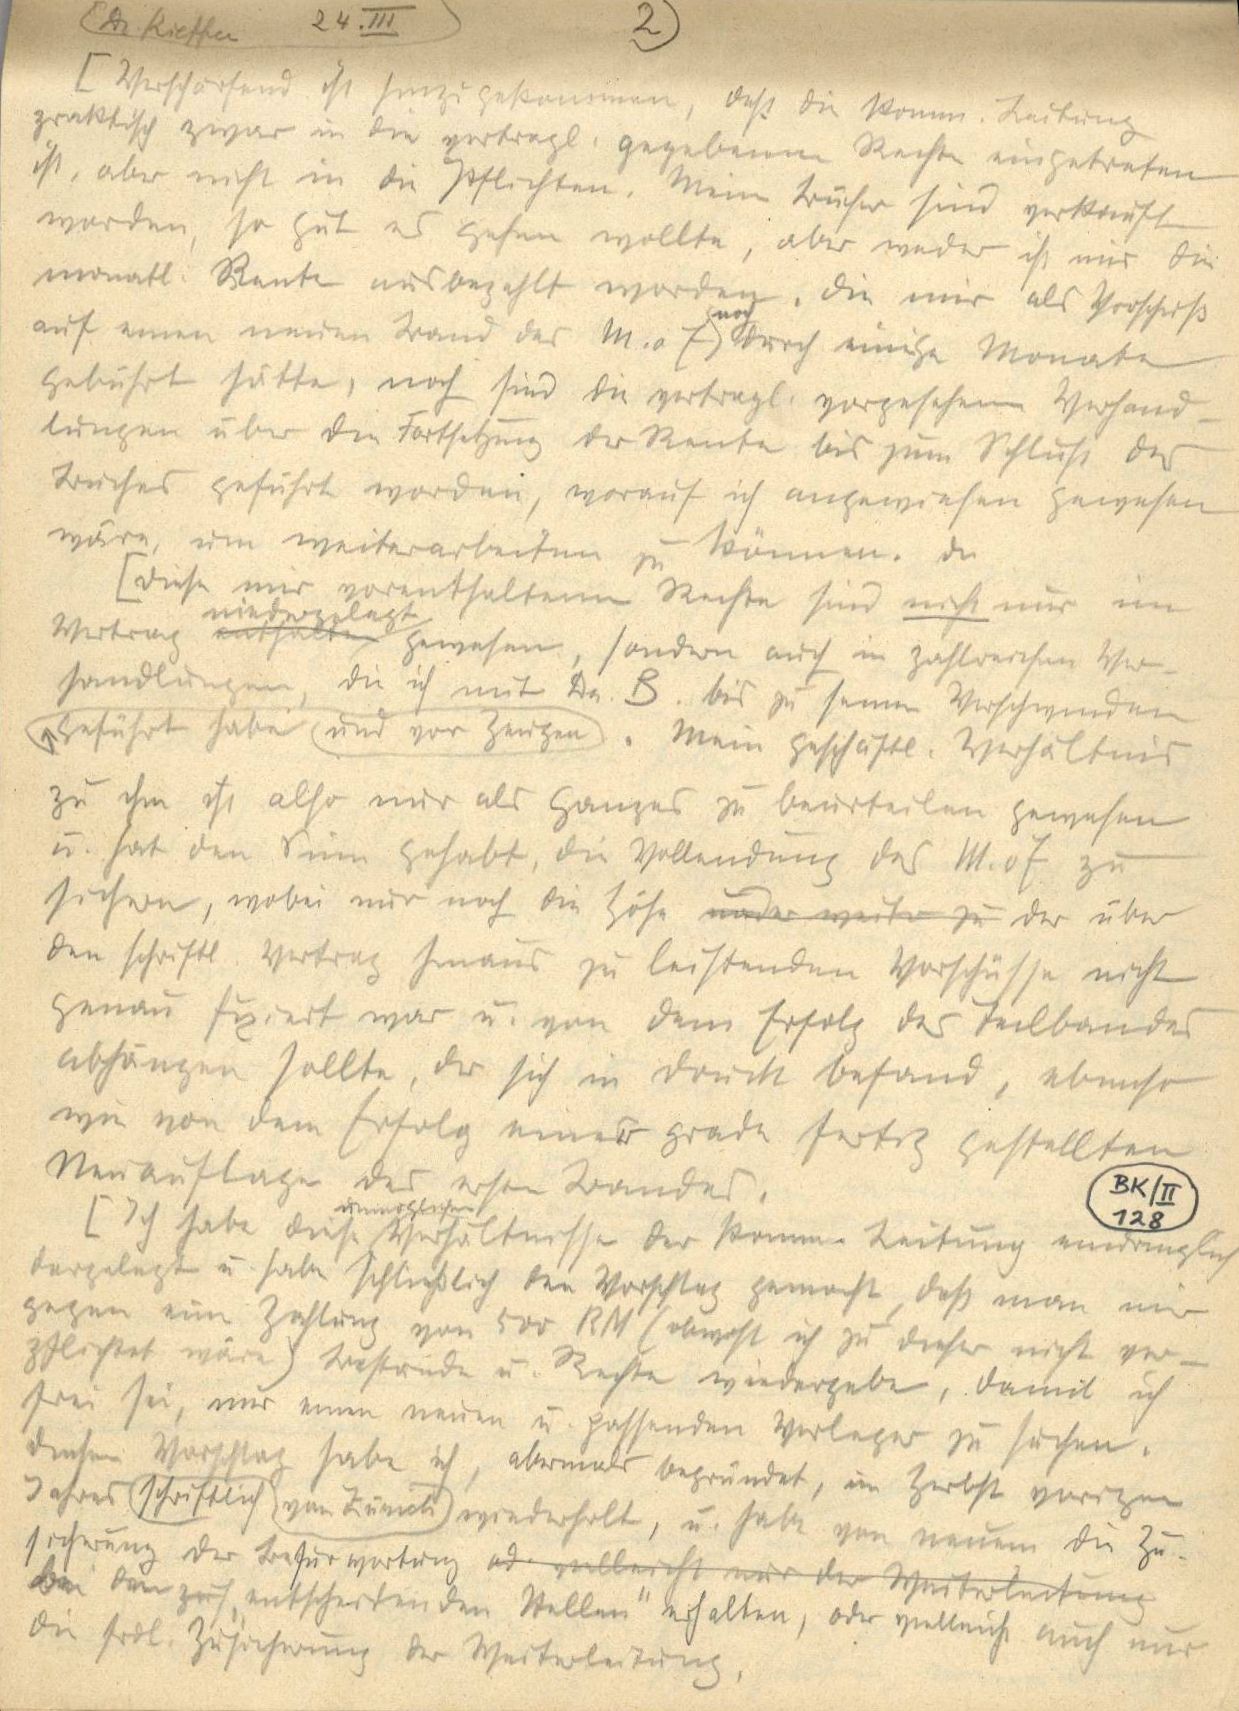 Dr. Kieffer 24.III 2)
[Verschärfend ist hinzugekommen, daß die komm. Leitung
praktisch zwar in die vertragl. gegebenen Rechte eingetreten
ist, aber nicht in die Pflichten. Meine Bücher sind verkauft
worden, so gut es gehen wollte, aber weder ist mir die
monatl. Rente ausbezahlt worden, die mir als Vorschuß
auf einen neuen Band des M.oE noch durch einige Monate
gebührt hätte, noch sind die vertragl. vorgesehenen Verhand-
lungen über die Fortsetzung der Rente bis zum Schluß des
Buches geführt worden, worauf ich angewiesen gewesen
wäre, um weiterarbeiten zu können. De
[Diese mir vorenthaltenen Rechte sind nicht nur im
niedergelegt
Vertrag enthalten gewesen, sondern auch in zahlreichen Ver-
handlungen, die ich mit Dr. B. bis zu seinem Verschwinden
geführt habe und vor Zeugen. Mein geschäftl. Verhältnis
zu ihm ist also nur als Ganzes zu beurteilen gewesen
u. hat den Sinn gehabt, die Vollendung des M.oE zu
sichern, wobei nur noch die Höhe der über
den schriftl. Vertrag hinaus zu leistenden Vorschüsse nicht
genau fixiert war u. von dem Erfolg des Teilbandes
abhängen sollte, der sich in Druck befand, ebenso
wie von dem Erfolg einer grade fertig gestellten
Neuauflage des ersten Bandes.
BK/II
128
[Ich habe diese Verhältnisse der komm. Leitung eindringlich
dargelegt u. habe schließlich den Vorschlag gemacht, daß man mir
gegen eine Zahlung von 500 RM (obwohl ich zu dieser nicht ver-
pflichtet wäre) Bestände u. Rechte wiedergebe, damit ich
frei sei, mir einen neuen u. passenden Verleger zu suchen.
Diesen Vorschlag habe ich, abermals begründet, im Herbst vorigen
Jahres schriftlich von Zürich wiederholt, u. habe von neuem die Zu-
sicherung der Befürwortung od. vielleicht nur der Weiterleitung
bei den „entscheidenden Stellen" erhalten, oder vielleicht auch nur
die frdl. Zusicherung der Weiterleitung,